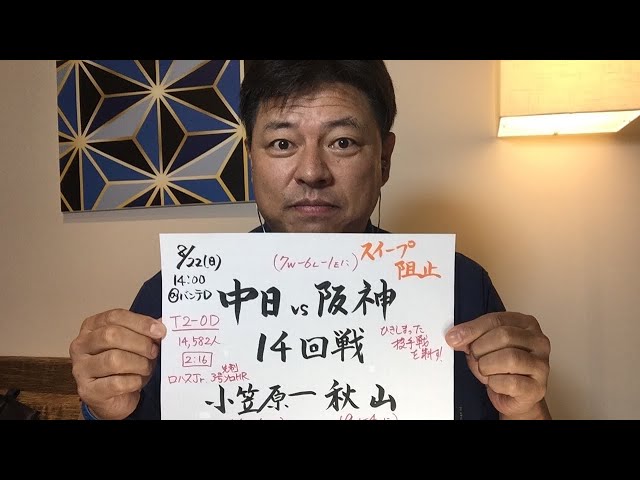 8/22(日)
14:00
バンテD
(7W-6L-1E)
スイープ
阻止
中日 vs 阪神
14回戦
T2-0D
14,582人
2:16
ロハスJr. 3号ソロHR
先制
ひきしまった
投手戦
を制す!
小笠原ー秋山